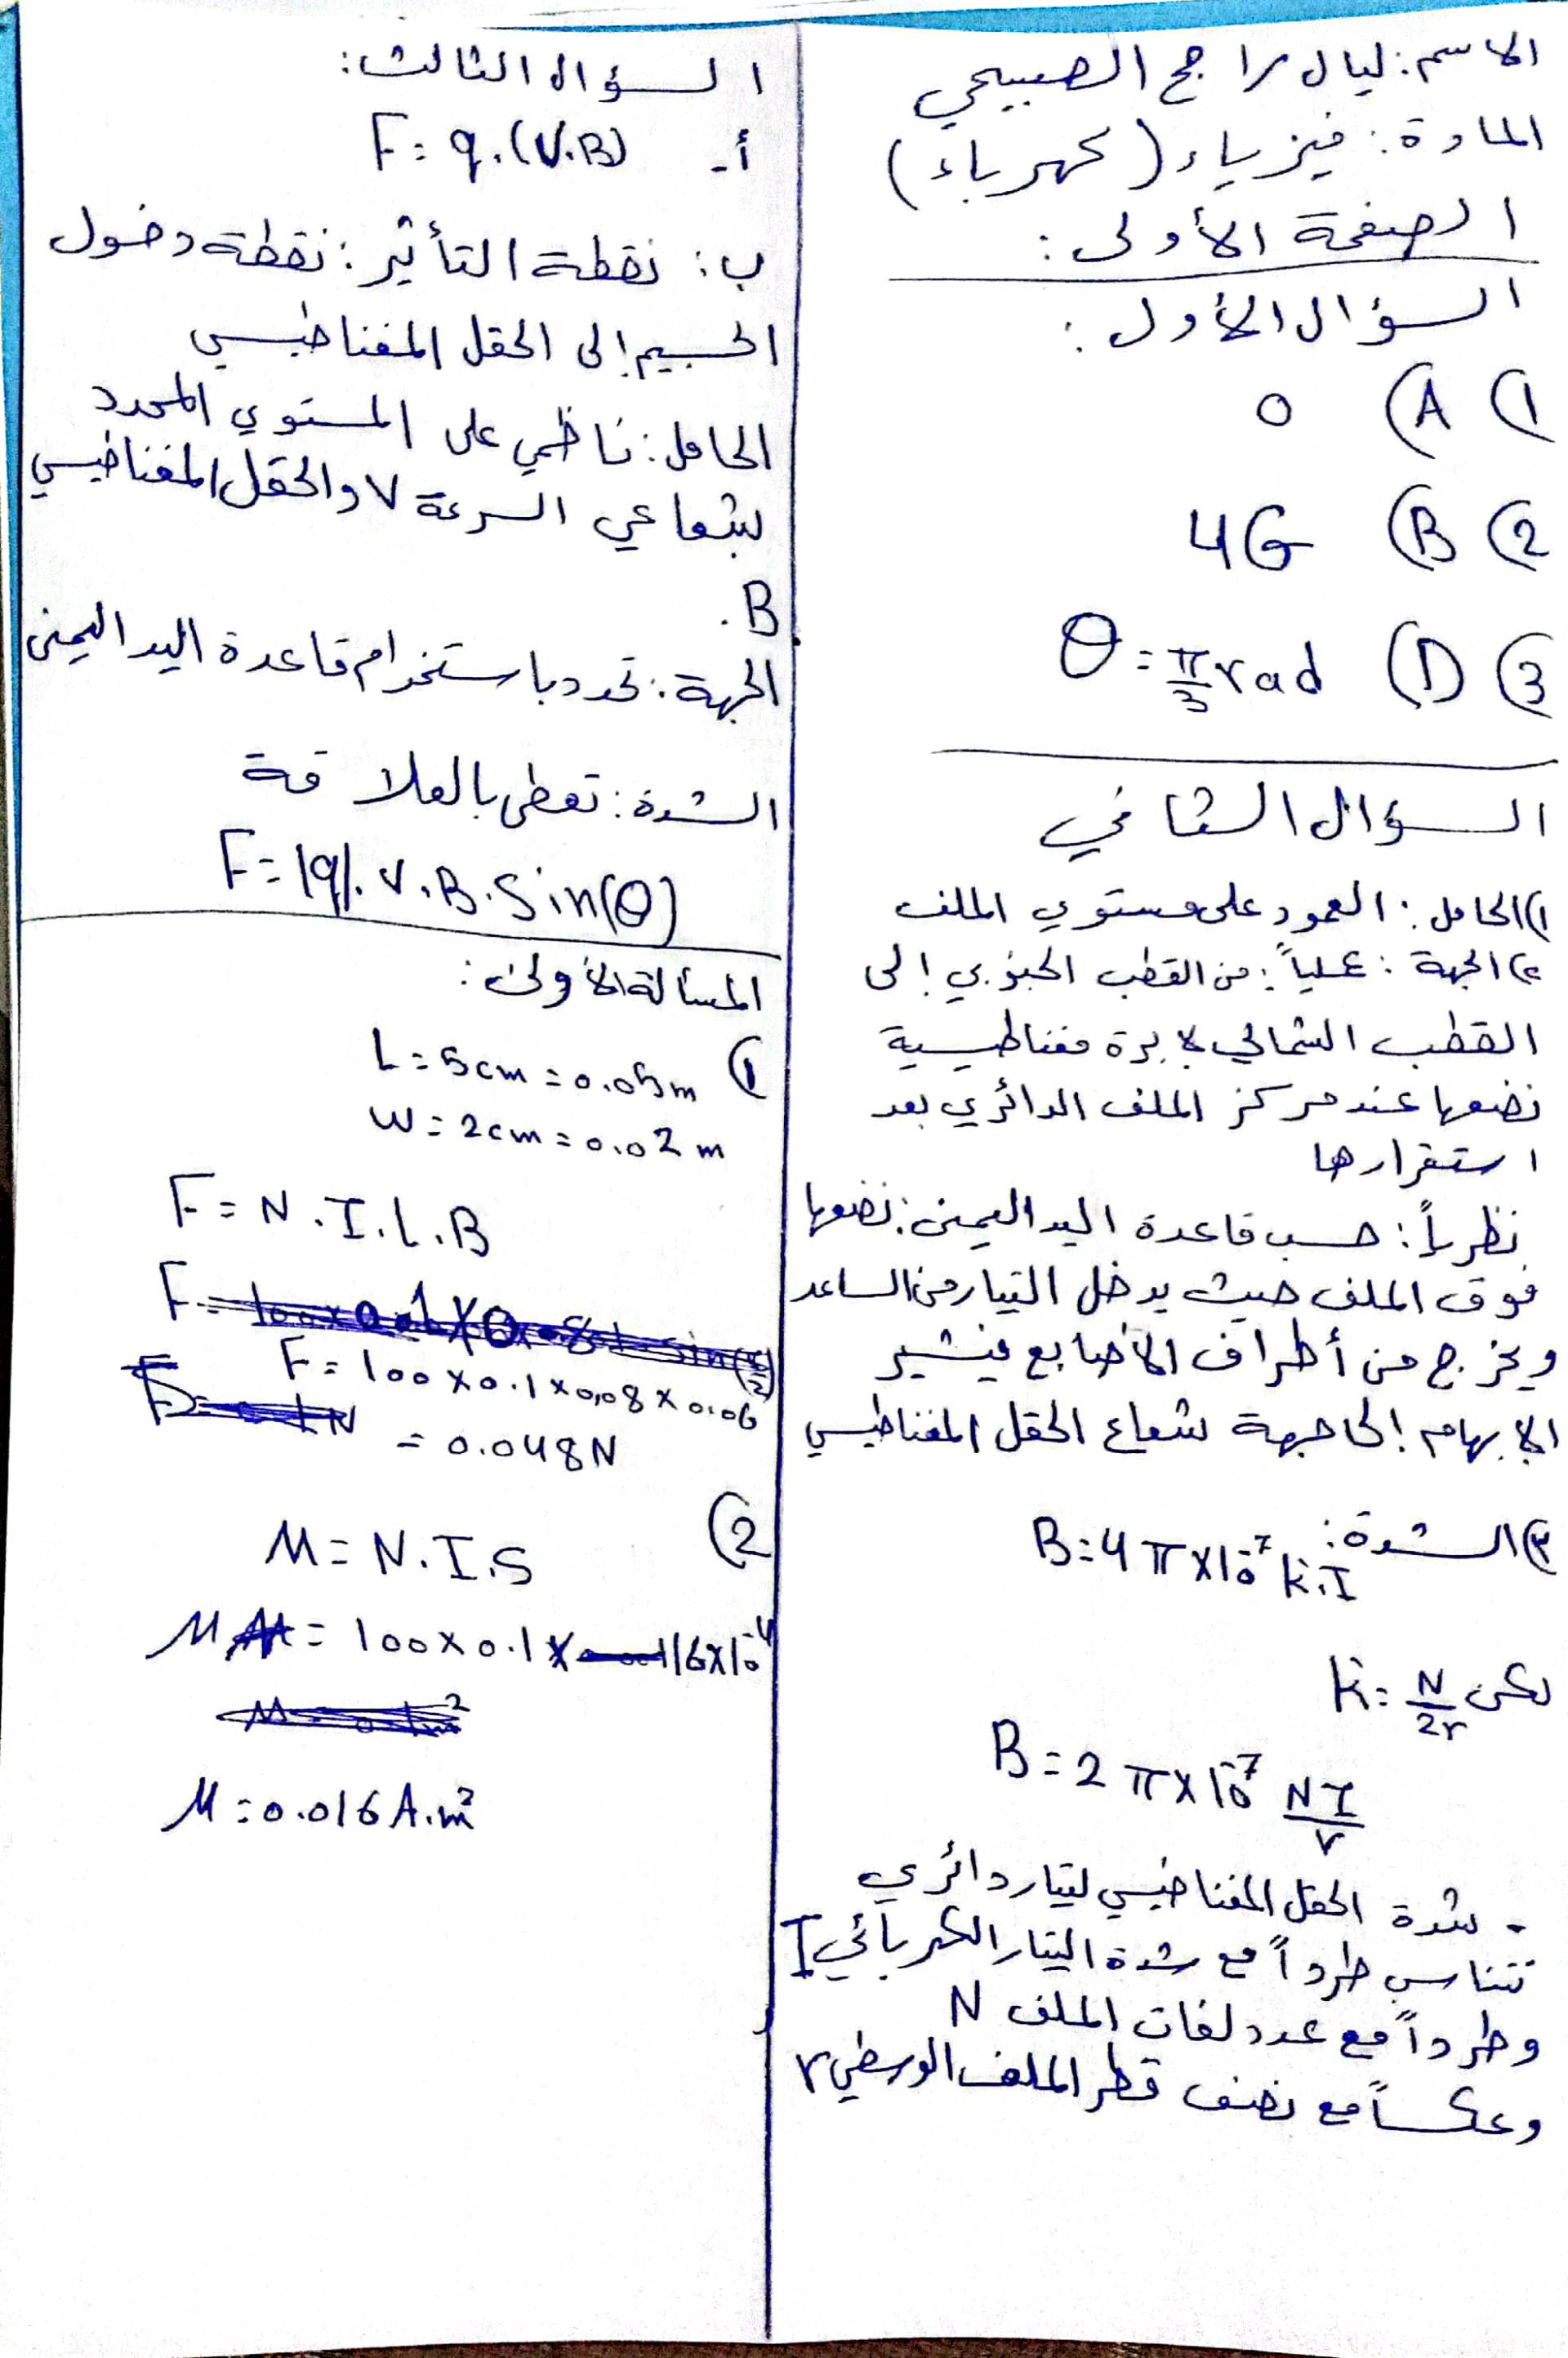 الاسم: ليال راجح الصبيحي
المادة: فيزياء (كهرباء)
الصفحة الأولى:
السؤال الأول:
1) A) 0
2) B) 4G
3) D) θ = π/3 rad
السؤال الثاني
1) الحامل: العمود على مستوي الملف
2) الجهة: عملياً: من القطب الجنوبي إلى
القطب الشمالي لإبرة مغناطيسية
نضعها عند مركز الملف الدائري بعد
استقرارها
نظرياً: حسب قاعدة اليد اليمنى: نضعها
فوق الملف حيث يدخل التيار من الساعد
ويخرج من أطراف الأصابع فيشير
الإبهام إلى جهة شعاع الحقل المغناطيسي
3) الشدة: B = 4π×10⁻⁷ k.I
لكن k = N/2r
B = 2π×10⁻⁷ NI/r
- شدة الحقل المغناطيسي لتيار دائري
تتناسب طرداً مع شدة التيار الكهربائي I
وطرداً مع عدد لفات الملف N
وعكساً مع نصف قطر الملف الوسطي r
السؤال الثالث:
أ- F = q.(V.B)
ب: نقطة التأثير: نقطة دخول
الجسيم إلى الحقل المغناطيسي
الحامل: ناظمي على المستوي المحدد
بشعاعي السرعة V والحقل المغناطيسي
B.
الجهة: تحدد باستخدام قاعدة اليد اليمنى
الشدة: تعطى بالعلاقة
F = |q|.v.B.Sin(θ)
المسألة الأولى:
1) L = 5cm = 0.05m
W = 2cm = 0.02m
F = N.I.L.B
F = 100×0.1×0.08×0.06
= 0.048N
2) M = N.I.S
M = 100×0.1×16×10⁻⁴
M = 0.016 A.m²